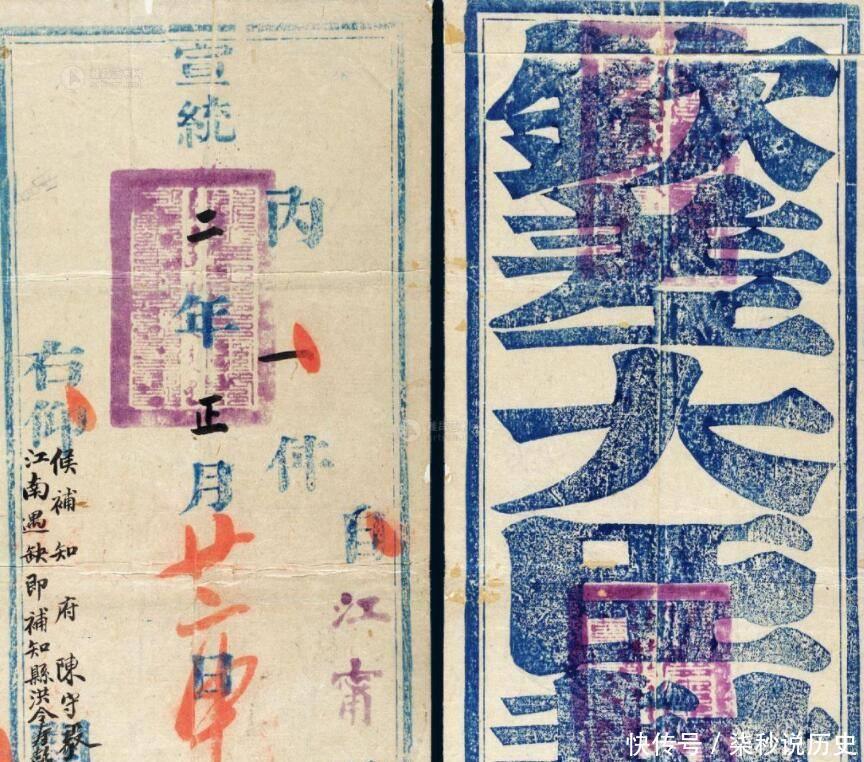 欽差大臣
自江甯
丙一件
宣統二年正月廿二日
右仰
候補知府陳守
江南遇缺即補知縣洪令
快传号 / 柒秒说历史